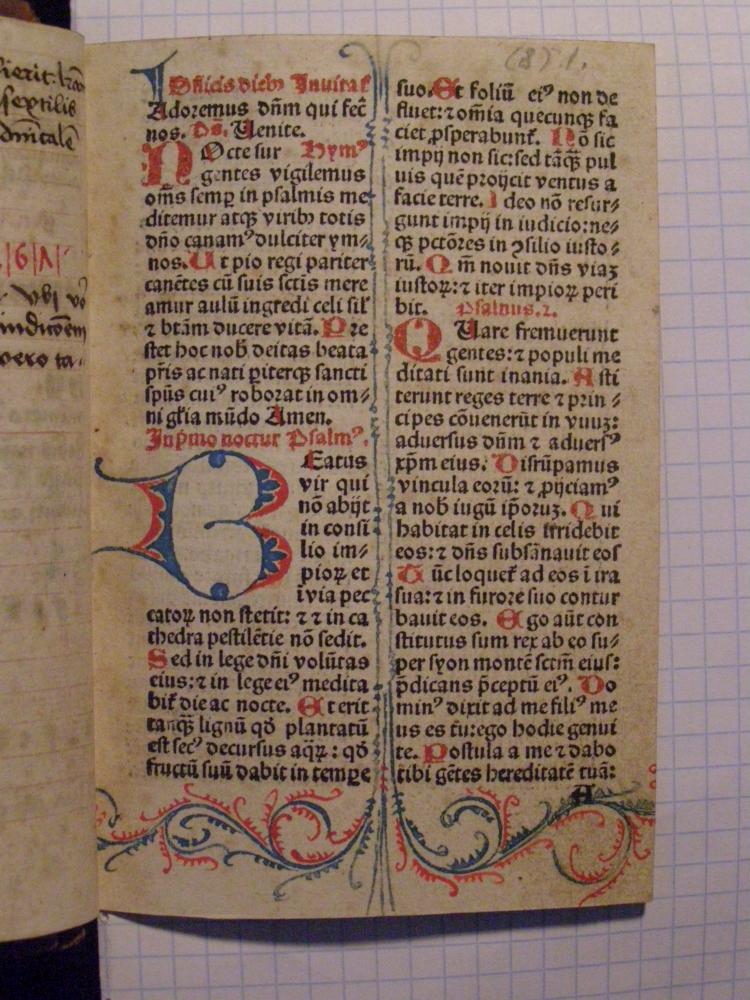 ierit:
sextilis
dn̄icalē
|6|A|
vbi vo
inducōem
vero ta-
(8) 1.
Dn̄icis dieb⁹ Inuitat
Adoremus dn̄m qui fec̄
nos. Ps. Uenite.
NOcte sur Hym⁹
gentes vigilemus
om̄s semꝑ in psalmis me
ditemur atqꝫ virib⁹ totis
dn̄o canam⁹ dulciter ym⸗
nos. Ut pio regi pariter
canētes cū suis sctis mere
amur aulū ingredi celi sil̄
⁊ btām ducere vitā. Pre
stet hoc nob̄ deitas beata
pr̄is ac nati ꝑiterqꝫ sancti
spūs cui⁹ roborat in om⸗
ni gl̄ia mūdo Amen.
In p̄mo noctur Psalm⁹.
BEatus
vir qui
nō abijt
in consi
lio im⸗
pioꝝ et
ī via pec
catoꝝ non stetit: ⁊ ⁊ in ca
thedra pestilētie nō sedit.
Sed in lege dn̄i volūtas
eius: ⁊ in lege ei⁹ medita
bit̄ die ac nocte. Et erit
tanqꝫ lignū qd̄ plantatū
est sec⁹ decursus aqꝝ: qd̄
fructū suū dabit in tempꝛe
suo. Et foliū ei⁹ non de
fluet: ⁊ om̄ia quecunqꝫ fa
ciet ꝓsperabunt̄. Nō sic
impij non sic: sed tāqꝫ pul
uis quē proijcit ventus a
facie terre. Ideo nō resur⸗
gunt impij in iudicio: ne⸗
qꝫ pctōres in ꝯsilio iusto⸗
rū. Qm̄ nouit dn̄s viaꝫ
iustoꝝ: ⁊ iter impioꝝ peri
bit. Psalmus .2.
QUare fremuerunt
gentes: ⁊ populi me
ditati sunt inania. Asti
terunt reges terre ⁊ prin⸗
cipes cōuenerūt in vnuꝫ:
aduersus dn̄m ⁊ aduers⁹
xp̄m eius. Disrūpamus
vincula eorū: ⁊ ꝓijciam⁹
a nob̄ iugū ip̄oruꝫ. Qui
habitat in celis irridebit
eos: ⁊ dn̄s subsānauit eos
Tūc loquet̄ ad eos ī ira
sua: ⁊ in furore suo contur
bauit eos. Ego aūt con
stitutus sum rex ab eo su⸗
per syon montē sctm̄ eius:
p̄dicans p̄ceptū ei⁹. Do
min⁹ dixit ad me fili⁹ me
us es tu: ego hodie genui
te. Postula a me ⁊ dabo
tibi gētes hereditatē tuā:
A